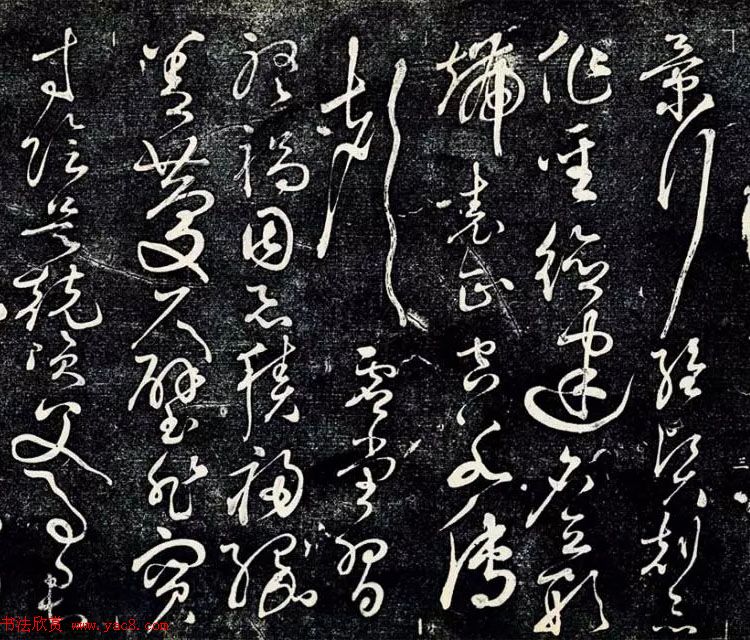 景行維賢剋念
作聖德建名立形
端表正空谷傳
聲虛堂習
聽禍因惡積福緣
善慶尺璧非寶
寸陰是競資父事君
书法欣赏 www.yac8.com